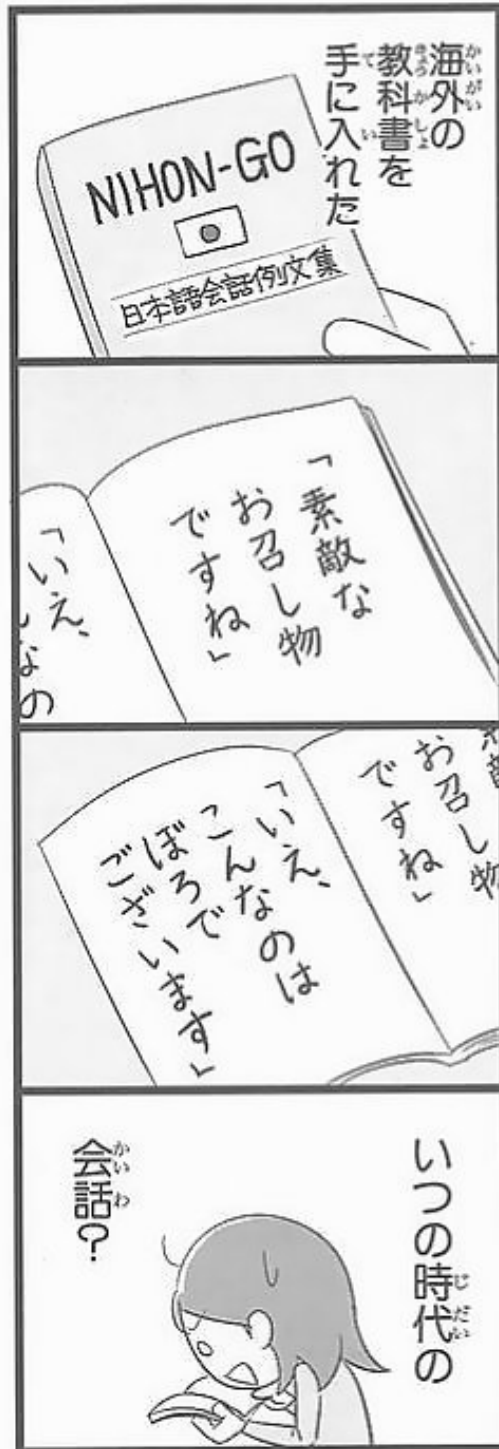 海外の
教科書を
手に入れた
NIHON-GO
日本語会話例文集
「素敵な
お召し物
ですね」
「いえ、
んなの
素敵
お召し物
ですね」
「いえ、
こんなのは
ぼろで
ございます」
いつの時代の
会話？